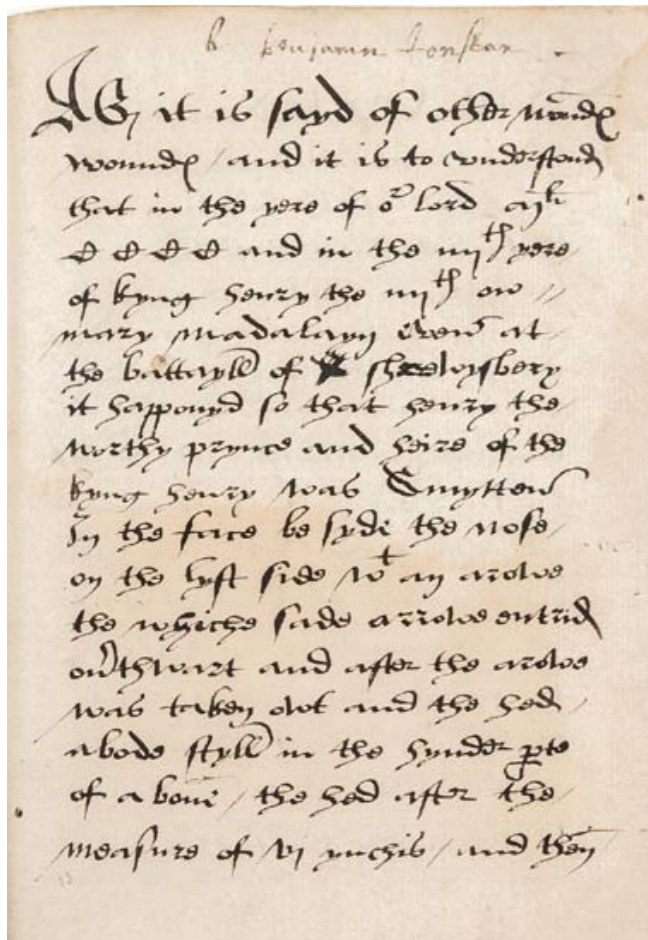 b benjamin Jonson
AS it is sayd of other wondes
woundes / and it is to vnderstond
that in the yere of or lord mli
C C C C and in the iiijth yere
of kyng henry the iiijth on //
mary Madalayn Even at
the battayll of shrewysbery
it happonyd so that henry the
worthy prynce and heire of the
kyng henry was Smytten
In the face be syde the nose
on the lyft side wt an arowe
the whiche sade arrowe entrid
ouerthwart and after the arowe
was taken owt and the hed
abode styll in the hynder parte
of a bone / the hed after the
measure of vj ynchis / and then